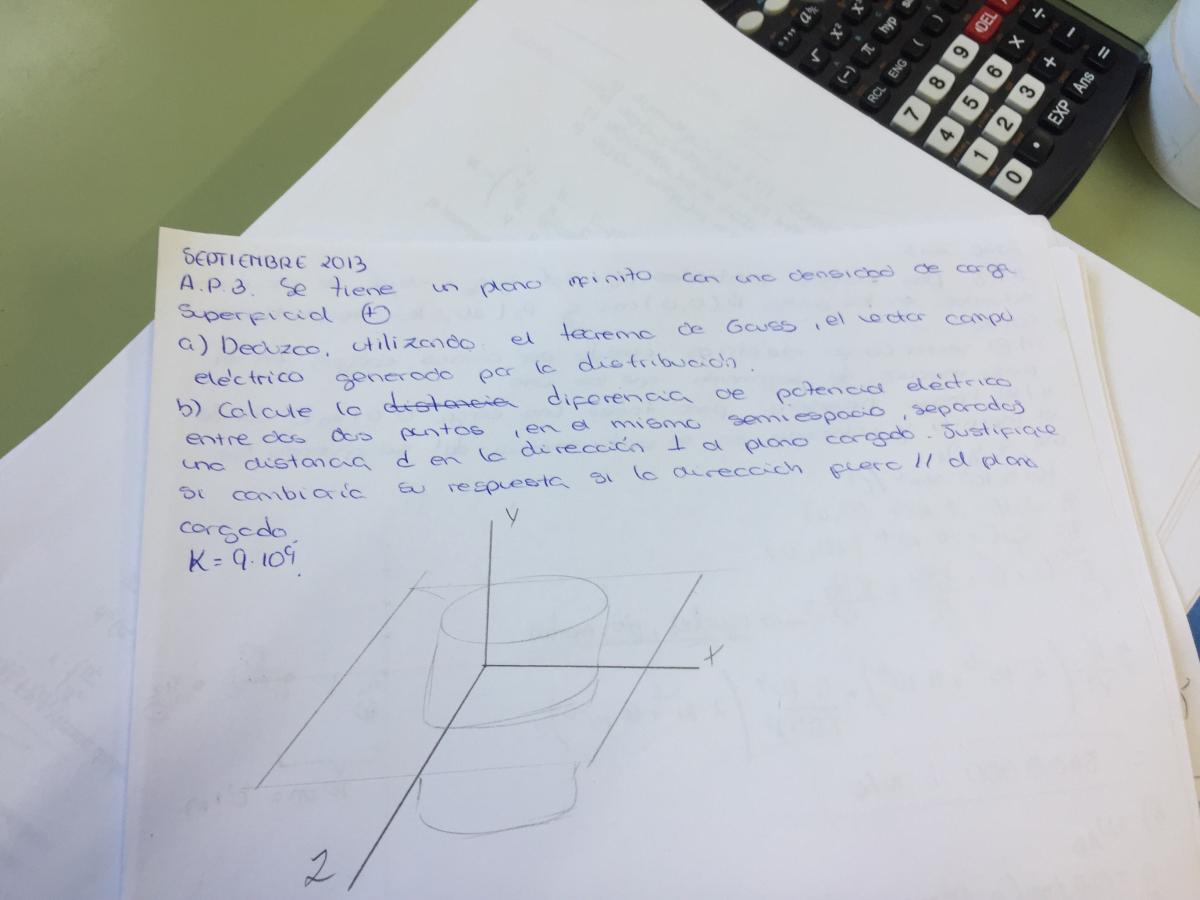 SEPTIEMBRE 2013
A.P.3. Se tiene un plano infinito con una densidad de carga
superficial (+)
a) Deduzca, utilizando el teorema de Gauss, el vector campo
eléctrico generado por la distribución.
b) Calcule la distancia diferencia de potencial eléctrico
entre dos dos puntos, en el mismo semiespacio, separados
una distancia d en la dirección ⊥ al plano cargado. Justifique
si cambiaría su respuesta si la dirección fuera // al plano
cargado.
K = 9·10⁹.
Y
X
Z
DEL
÷
hyp
x²
√
π
(
)
9
X
−
(−)
ENG
8
6
+
=
RCL
7
5
3
Ans
4
2
EXP
1
·
0